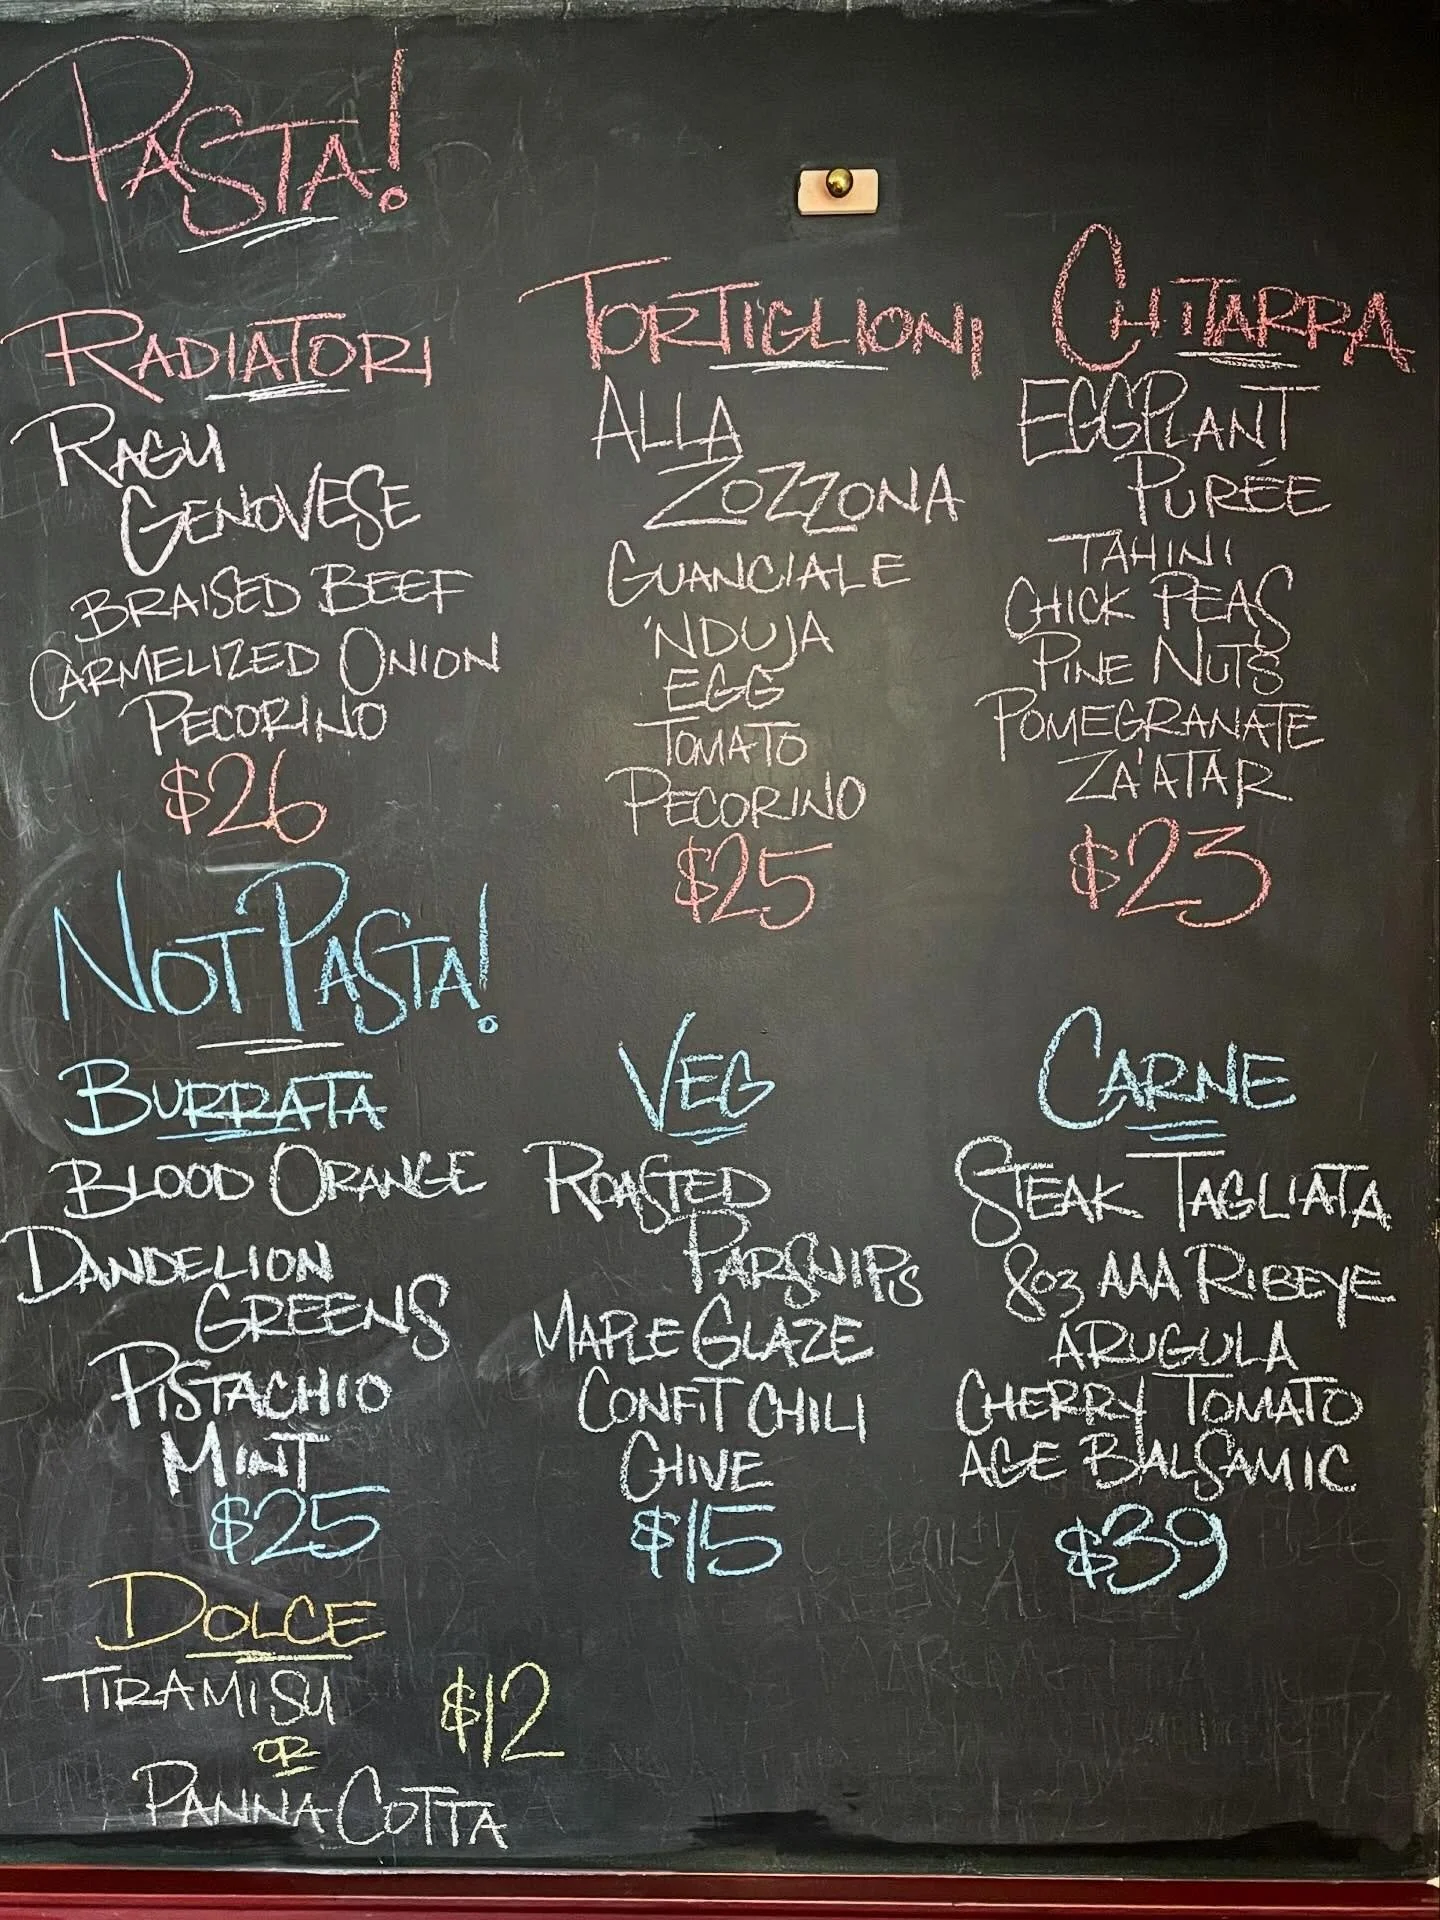 PASTA!
RADIATORI
RAGU
GENOVESE
BRAISED BEEF
CARMELIZED ONION
PECORINO
$26
TORTIGLIONI
ALLA
ZOZZONA
GUANCIALE
'NDUJA
EGG
TOMATO
PECORINO
$25
CHITARRA
EGGPLANT
PURÉE
TAHINI
CHICK PEAS
PINE NUTS
POMEGRANATE
ZA'ATAR
$23
NOT PASTA!
BURRATA
BLOOD ORANGE
DANDELION
GREENS
PISTACHIO
MINT
$25
VEG
ROASTED
PARSNIPS
MAPLE GLAZE
CONFIT CHILI
CHIVE
$15
CARNE
STEAK TAGLIATA
8oz AAA RIBEYE
ARUGULA
CHERRY TOMATO
AGE BALSAMIC
$39
DOLCE
TIRAMISU
OR
PANNA COTTA
$12